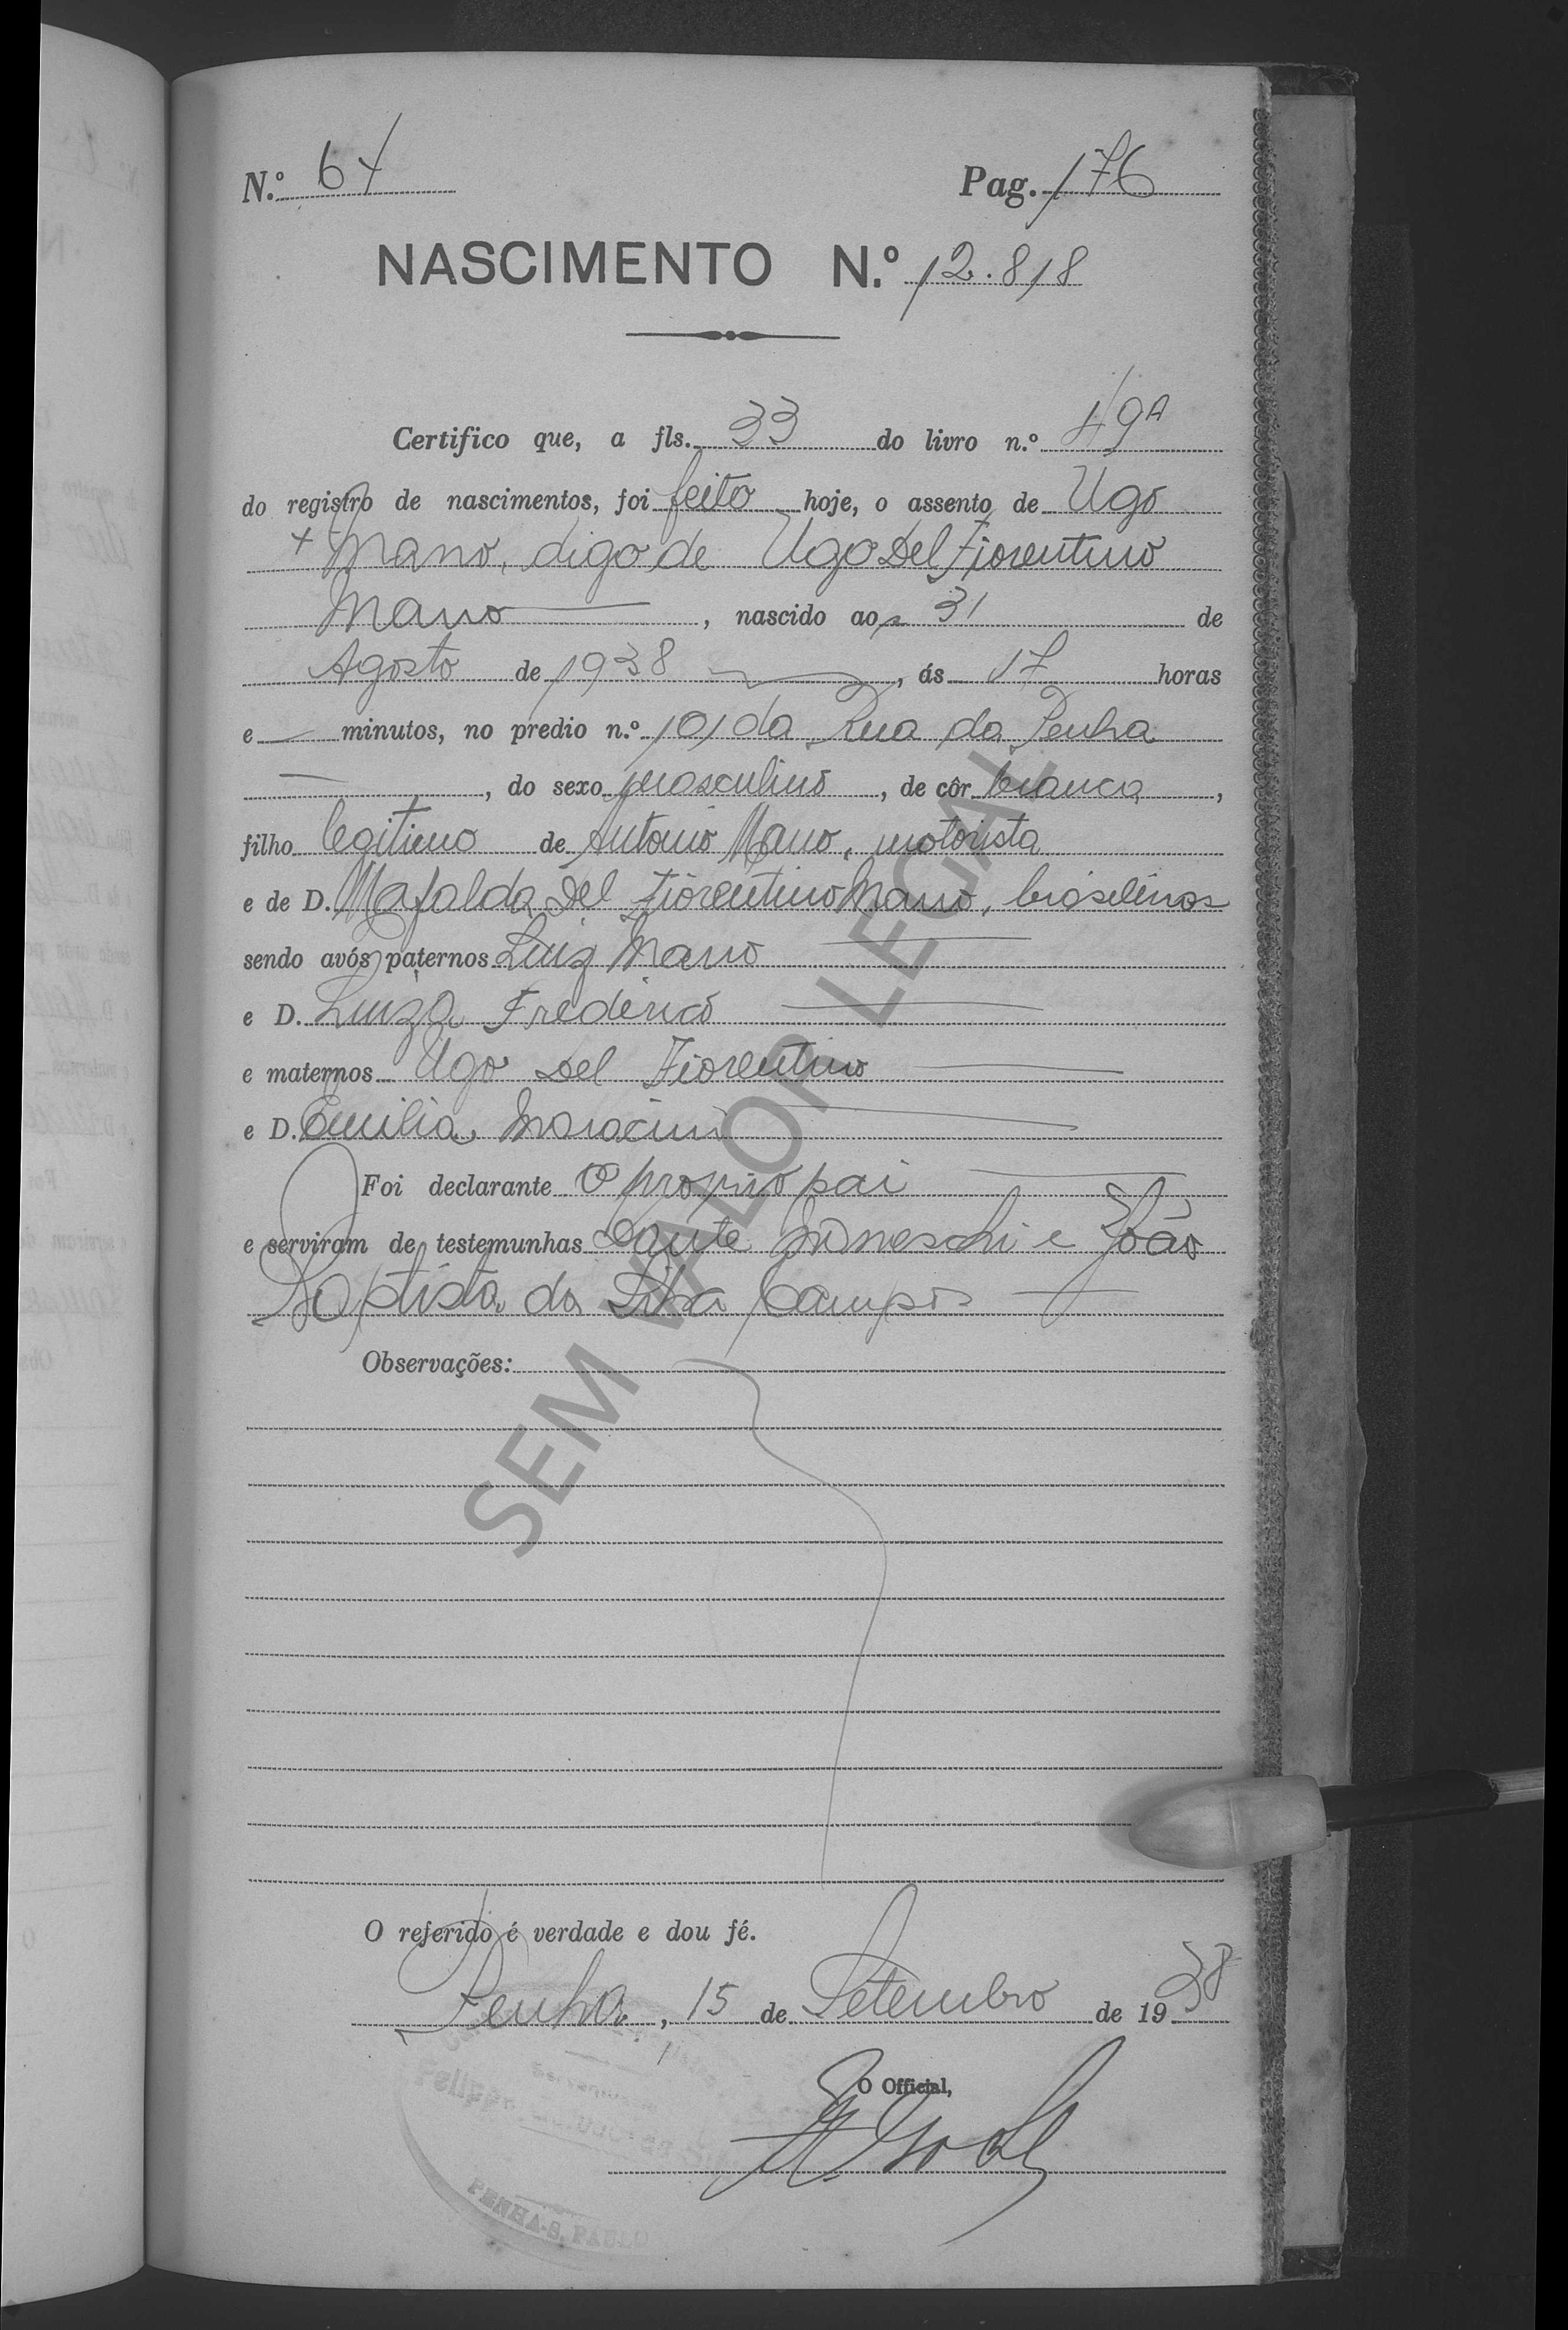 N.º 64 Pag. 176
NASCIMENTO N.º 12.818
Certifico que, a fls. 33 do livro n.º 49A
do registro de nascimentos, foi feito hoje, o assento de Ugo
+ Mano, digo de Ugo Del Fiorentino
Mano, nascido aos 31 de
Agosto de 1938, ás 17 horas
e minutos, no predio n.º 101 da Rua da Penha
, do sexo masculino, de côr branca,
filho legitimo de Antonio Mano, motorista
e de D. Mafalda Del Fiorentino Mano, brasileiros
sendo avós paternos Luiz Mano
e D. Luiza Frederico
e maternos Ugo Del Fiorentino
e D. Emilia
Foi declarante O proprio pai
e serviram de testemunhas Dante e João
Baptista da Silva Campos
Observações:
O referido é verdade e dou fé.
Penha, 15 de Setembro de 1938
O Official,
PENHA-S. PAULO
SEM VALOR LEGAL